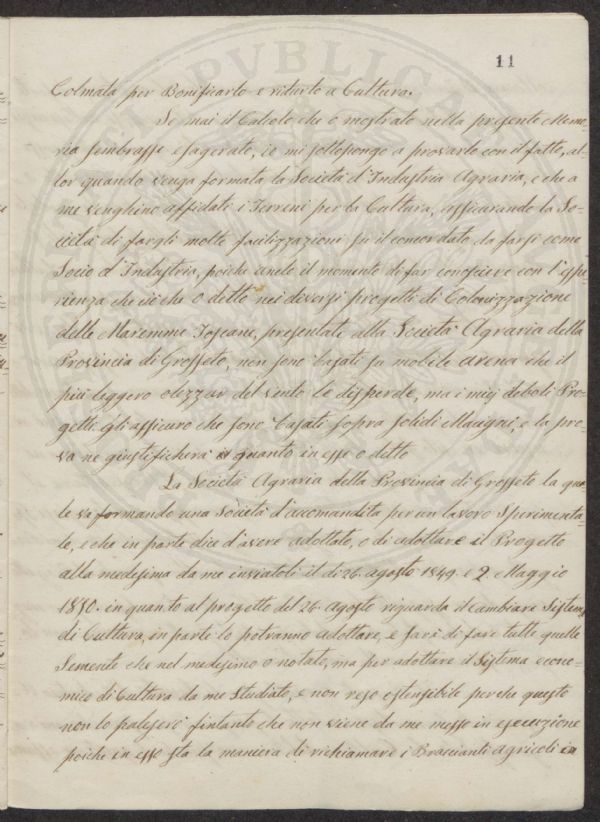 11
Colmata per Bonificarlo e ridurlo a Cultura.
Se mai il Calcolo che o mostrato nella presente Memo-
ria sembrasse esagerato, io mi sottopongo a provarlo con il fatto, al-
lor quando venga formata la Società d'Industria Agraria, e che a
me venghino affidati i Terreni per la Cultura, assicurando la So-
cietà di fargli molte facilizzazioni su il concordato da farsi come
Socio d'Industria, poiche anelo il momento di far conosciere con l'espe-
rienza che ciò che o detto nei diversi progetti di Colonizzazione
delle Maremme Toscane, presentate alla Società Agraria della
Provincia di Grosseto, non sono basati su mobile arena che il
più leggero olezzar del vento le disperde, ma i miej deboli Pro-
getti, gli assicuro che sono basati sopra solidi Macigni, e la pro-
va ne giustificherà quanto in esse o detto
La Società Agraria della Provincia di Grosseto la qua-
le va formando una Società d'accomandita per un lavoro Sperimenta-
le, e che in parte dice d'avere adottato, o di adottare il Progetto
alla medesima da me inviatoli il di 26. agosto 1849. e 2 Maggio
1850. in quanto al progetto del 26. agosto riguarda il cambiare Sistema
di Cultura, in parte lo potranno adottare, e farà di fare tutte quelle
Semente che nel medesimo o notato, ma per adottare il Sistema econo-
mico di Cultura da me Studiato, e non reso estensibile perche questo
non lo paleserò fintanto che non viene da me messo in esecuzione
poiche in esso sta la maniera di richiamare i Braccianti agricoli in